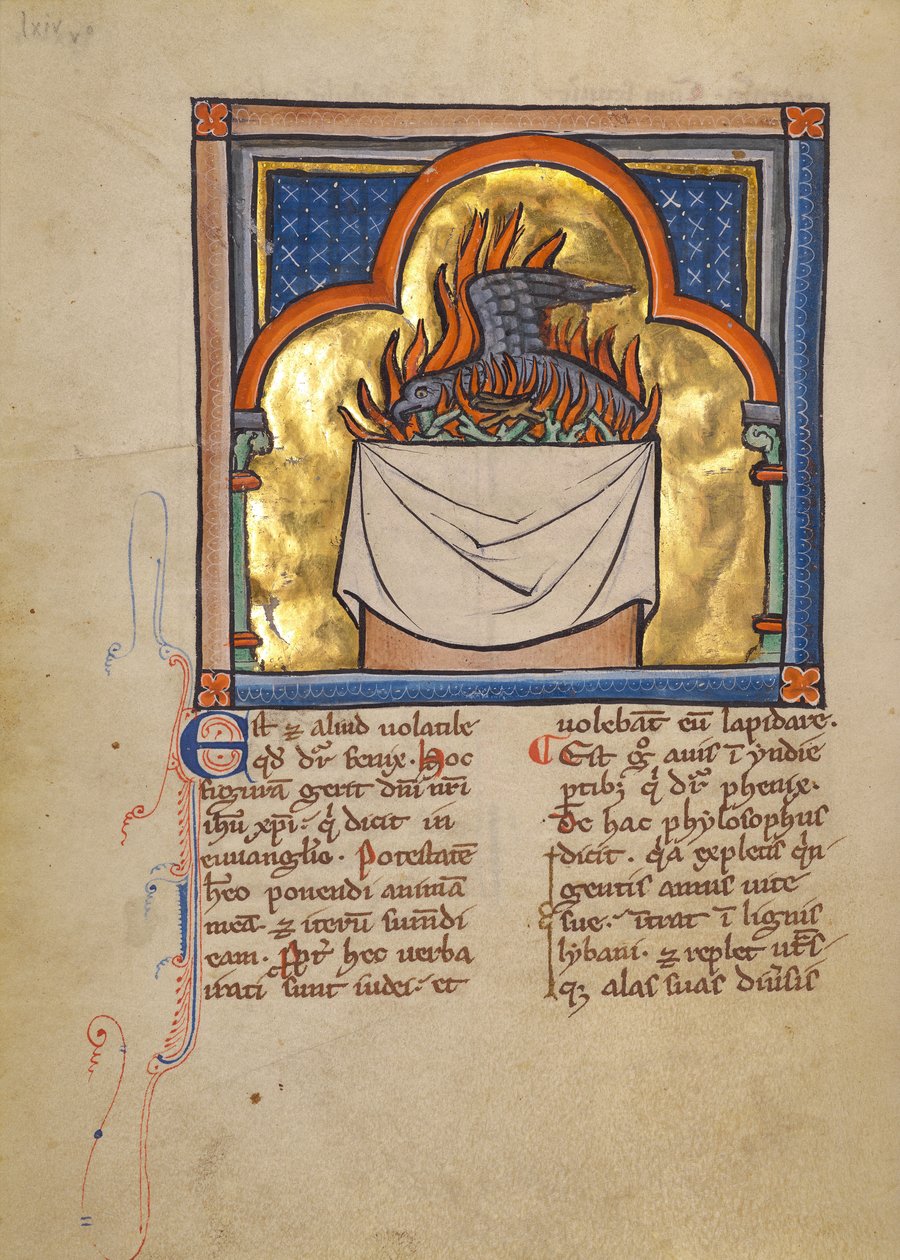 lxiv vº
Est ⁊ aliud uolatile
qd̄ dr̄ fenix. Hoc
figurā gerit dn̄i nr̄i
ihū xp̄i: q̄ dicit in
euuangl̄io. Potestatē
h̄eo ponendi animā
meā. ⁊ iterū sum̄di
eam. Ppt̄ hec uerba
irati sunt iudei: et
uolebāt eū lapidare.
Est g̊ auis ī yndie
ꝑtibꝫ q̄ dr̄ phenix.
De hac phylosophus
dicit. q̄a expletis q̄n
gentis annis uite
sue: ītrat ī lignis
lybani. ⁊ replet ut̄s
qꝫ alas suas diu̾sis